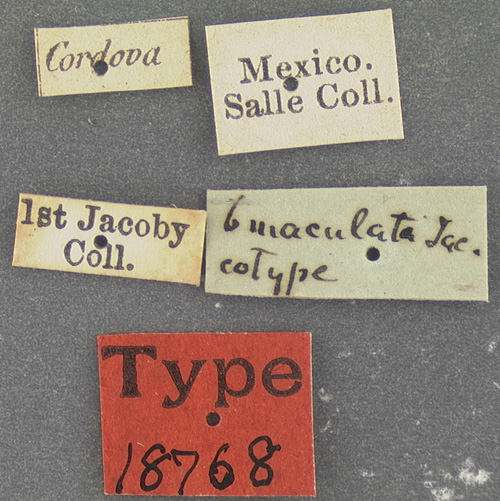 Cordova
Mexico.
Salle Coll.
1st Jacoby
Coll.
6 maculata Jac.
cotype
Type
18768